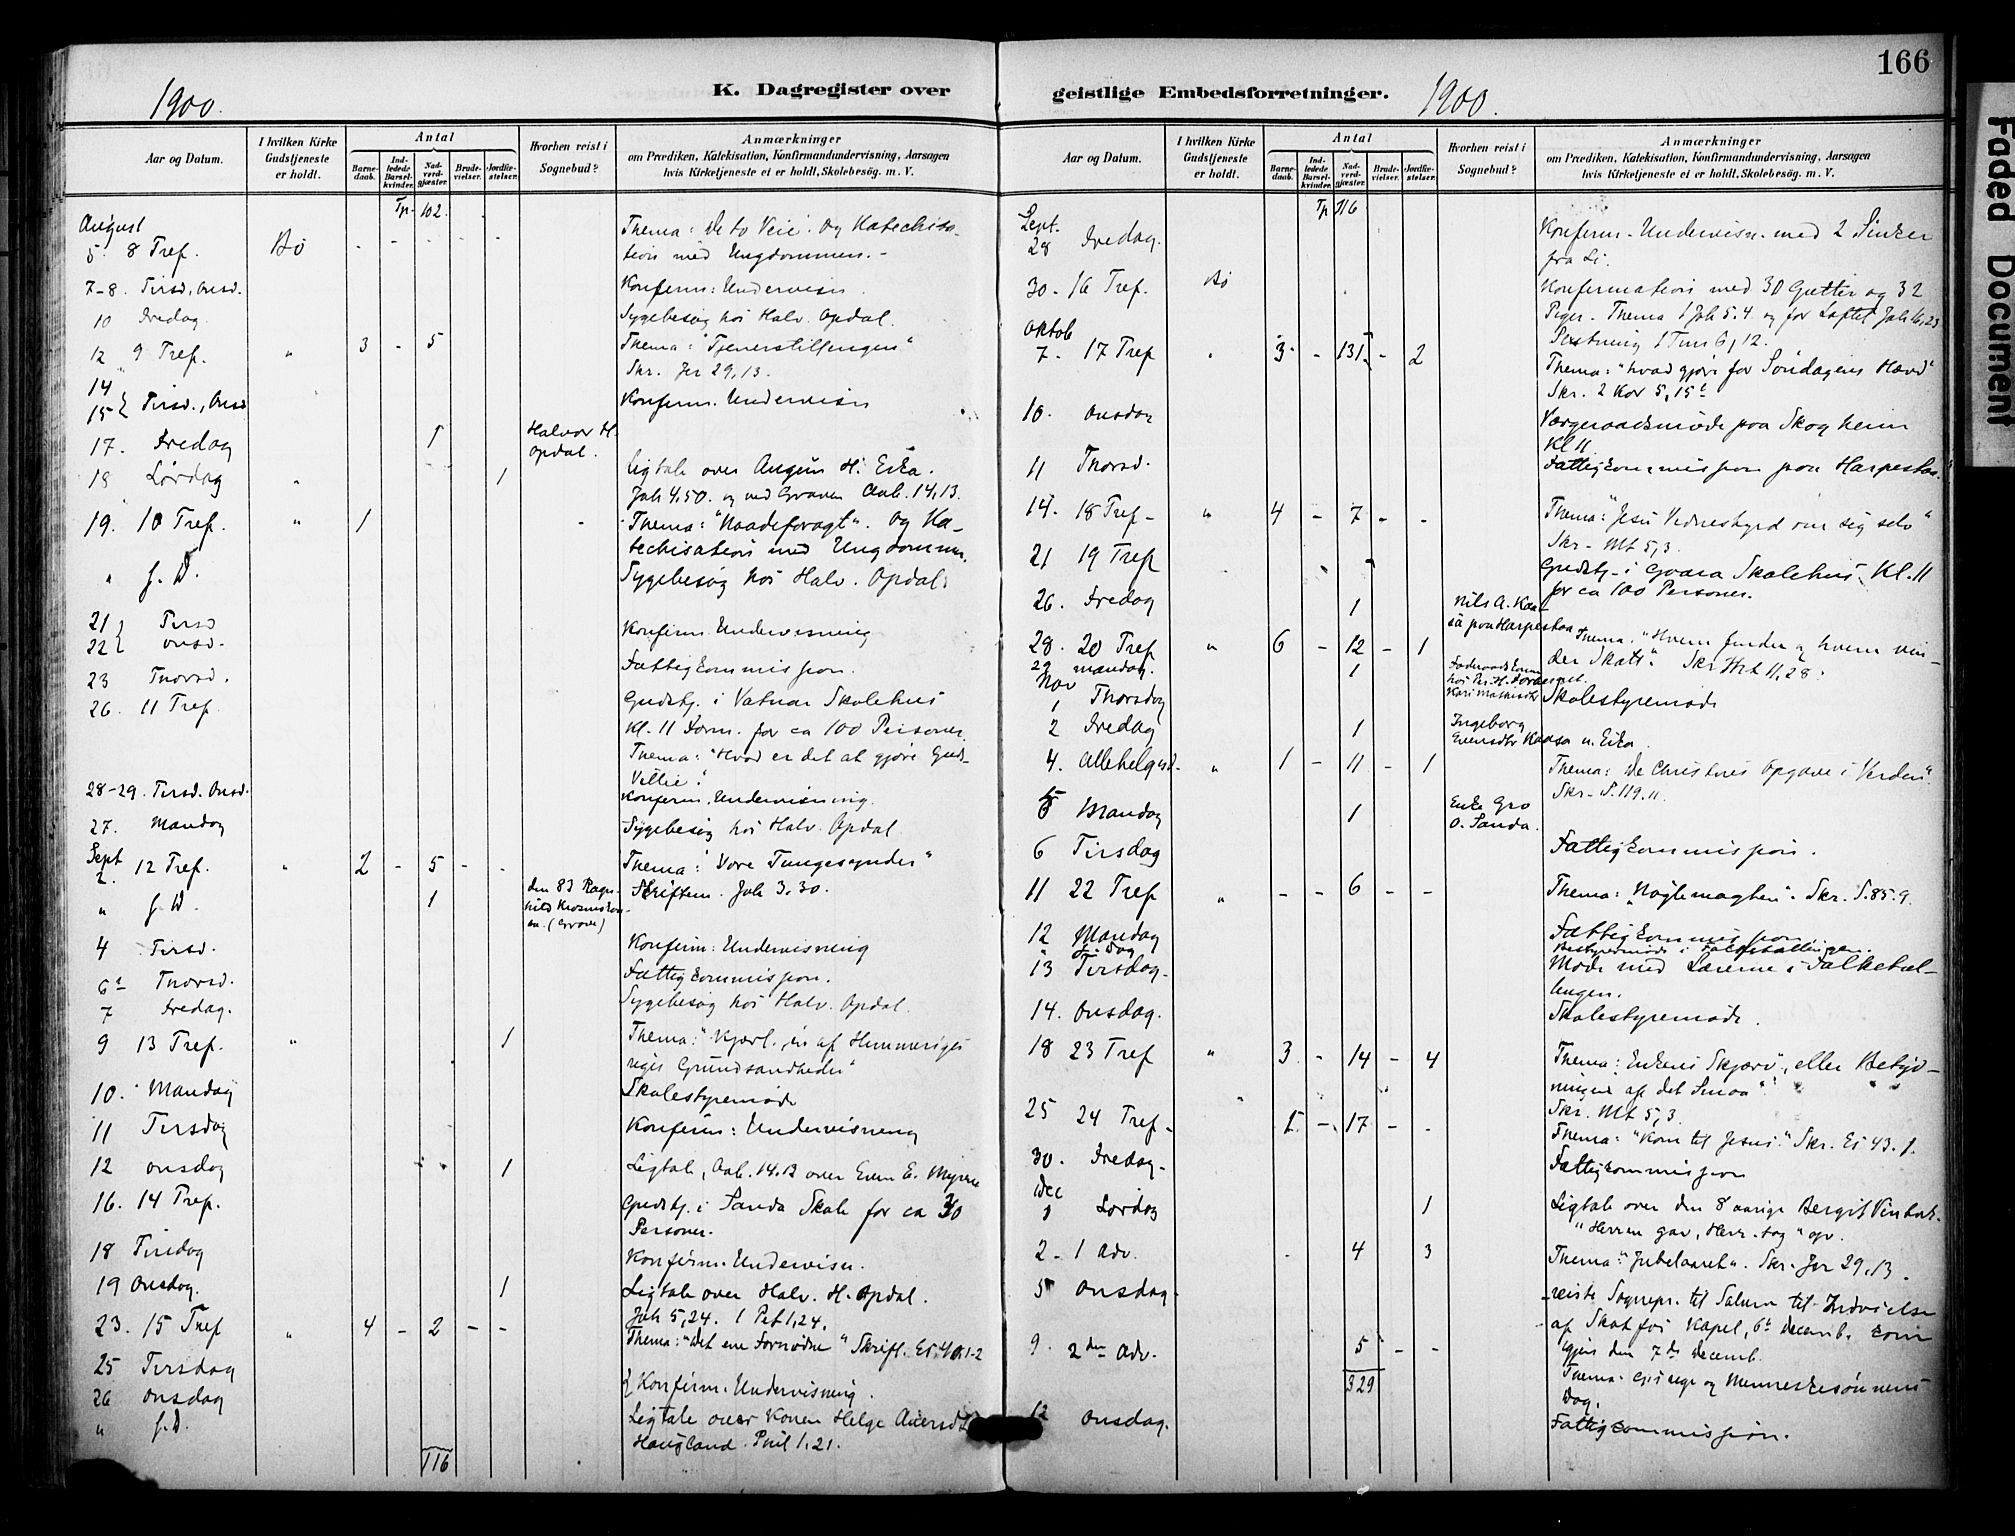 166
1900.
K. Dagregister over
Aar og Datum.
I hvilken Kirke Gudstjeneste er holdt.
Antal
Barnedaab.
Indledede Barselkvinder.
Nadverdgjæster.
Brudevielser.
Jordfæstelser.
Hvorhen reist i Sognebud?
Anmærkninger
om Prædiken, Katekisation, Konfirmandundervisning, Aarsagen
hvis Kirketjeneste ei er holdt, Skolebesøg. m. V.
Tp. 102.
August
5. 8 Tref. Bø - - - - - Thema: De to Veie. Og Katechisa-
tion med Ungdommen. -
7-8. Tirsd, Onsd. Konfirm: Undervisn.
10 Fredag. Sygebesøg hos Halv. Opdal.
12 9 Tref. " 3 - 5 Thema: "Tjenerstillingen"
Skr. Jer 29,13.
14
15 } Tirsd., Onsd Konfirm. Undervisn
17. Fredag 1 Halvor H.
Opdal.
18 Lørdag " 1 Ligtale over H. Eika.
Joh 4.50. og ved Graven Aab. 14,13.
19. 10 Tref. " 1 - Thema: "Naadeforagt". Og Ka-
techisation med Ungdommen.
" s. D. Sygebesøg hos Halv. Opdal.
21 } Tirsd
22 } onsd. Konfirm Undervisning
23 Thorsd. Fattigkommission.
26. 11 Tref. Gudstj. i Vatnar Skolehus
Kl. 11 Form. for ca 100 Personer.
Thema: "Hvad er det at gjøre Guds
Villie".
28-29. Tirsd. Onsd. Konfirm. Undervisning.
27. Mandag Sygebesøg hos Halv. Opdal
Sept
2. 12 Tref. " 2 - 5 - - Thema: "Vore Tungesynder"
Skriftem. Joh 3.30.
" s. D. 1 den 83 Ragn-
hild
(Grave)
4 Tirsd. Konfirm: Undervisning
6t Thorsd. Fattigkommission.
7 Fredag. Sygebesøg hos Halv. Opdal.
9 13 Tref. " 1 Thema: "Kjærl. en af Himmeriges
riges Grundsandheder"
10. Mandag Skolestyremøde
11 Tirsdag Konfirm: Undervisning
12 onsdag 1 Ligtale, Aab. 14.13 over Even E. Myren
16. 14 Tref. Gudstj. i Sanda Skole for ca 30
Personer.
18 Tirsdag Konfirm. Undervisn.
19 Onsdag. 1 Ligtale over Halv. H. Opdal.
Joh 5,24. 1 Pet 1,24.
23. 15 Tref " 4 - 2 - - Thema: "Det ene Fornødne" Skrift. Es 40.1-2
25 Tirsdag
26 onsdag } Konfirm. Undervisning.
" s. D. Ligtale over Konen Helge
Haugland. Phil 1.21.
116
geistlige Embedsforretninger.
1900.
Aar og Datum.
I hvilken Kirke Gudstjeneste er holdt.
Antal
Barnedaab.
Indledede Barselkvinder.
Nadverdgjæster.
Brudevielser.
Jordfæstelser.
Hvorhen reist i Sognebud?
Anmærkninger
om Prædiken, Katekisation, Konfirmandundervisning, Aarsagen
hvis Kirketjeneste ei er holdt, Skolebesøg. m. V.
Tp 116
Sept.
28 Fredag. Konfirm. Undervisn. med 2 Sinker
fra Li.
30. 16 Tref. Bø Konfirmation med 30 Gutter og 32
Piger. Thema 1 Joh 5.4. og for Løftet Joh 16,23
1 Tim 6,12.
Oktob
7. 17 Tref " 3 - 131 - 2 Thema: "hvad gjøre for Søndagens Hævd"
Skr. 2 Kor 5,15t
10. onsdag Værgeraadsmøde paa Skogheim
Kl 11
11 Thorsd. Fattigkommission paa Harpestaa.
14. 18 Tref. " 4 - 7 - - Thema: "Jesu Vidnesbyrd om sig selv"
Skr. Mt 5,3.
21 19 Tref Gudstj. i Gvara Skolehus. Kl. 11
for ca 100 Personer.
26. Fredag 1 Nils A. Kaa-
sa paa Harpestaa
28. 20 Tref " 6 - 12 - 1 Thema: "Hvem finder og hvem vin-
der Skatt". Skr Mt 11,28.
29 mandag. 1
Nov
1 Thorsdag Skolestyremøde
2 Fredag 1 Ingeborg
Evensdtr Kaasa u. Eika.
4. Allehelgsd. " 1 - 11 - 1 Thema: De Christnes Opgave i Verden".
Skr. S. 119.11.
5 Mandag 1 Enke Gro
O. Sanda.
6 Tirsdag Fattigkommission.
11 22 Tref " - - 6 - - Thema: "Nøglemagten". Skr. S. 85.9.
12 Mandag Fattigkommission
" s. Dag Bestyrermøde i Folkehallingen.
13 Tirsdag. Møde med Lærerne i Falkehal-
lingen.
14. onsdag. Skolestyremøde.
18 23 Tref " 3 - 14 - 4 Thema: Enkens Skjærv, eller Betyd-
ningen af det Smaa".
Skr. Mt 5,3.
25 24 Tref. " 1 - 17 - - Thema: "Kom til Jesus." Skr. Es 43.1.
30. Fredag. Fattigkommission
Dec
1 Lørdag 1 Ligtale over den 8 aarige Bergit
"Herren gav, Herr. tog" osv.
2. 1 Adv. - 4 3 Thema: "Jubelaaret". Skr. Jer 29.13.
5 onsdag. reiste Sognepr. til Solum til Indvielse
af Skotfos Kapel, 6t decemb. kom
igjen den 7de decemb.
9. 2den Adv. 5 - - Thema: og Menneskesønnens
Dag.
329
12 onsdag. Fattigkommission.
Faded Document